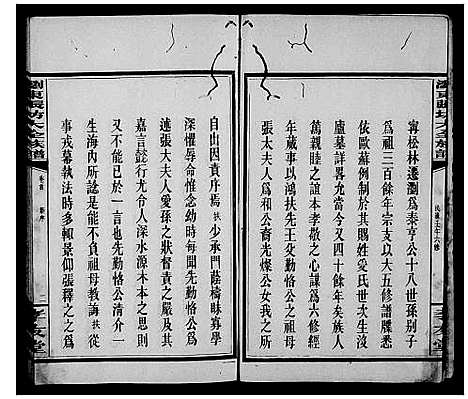 甯松林遷瀏爲泰亨公十八世孫別子
爲祖三百餘年宗支以大五修譜牒悉
依歐蘇例制於其賜姓爰氏世次生沒
廬墓詳畧允當今又四十餘年矣族人
篤親睦之誼本孝敬之心謀爲六修經
年蕆事以鴻扶先王交勤恪公之祖母
張太夫人爲和公裔光燦公女我之所
自出因責序焉扶少承門蔭檮昧寡學
深懼辱命惟念幼時每聞先勤恪公
述張太夫人愛孫之狀督責之嚴及其
嘉言懿行尤令人深水源木本之思則
又不能已於一言也先勤恪公清介一
生海內所諗是能不負祖母教誨扶從
事戎幕執法時多輒景仰張釋之之爲
瀏東張坊大全族譜
卷首
新序
二
孝友堂
瀏東張坊大全族譜
民國
六修
孝友堂